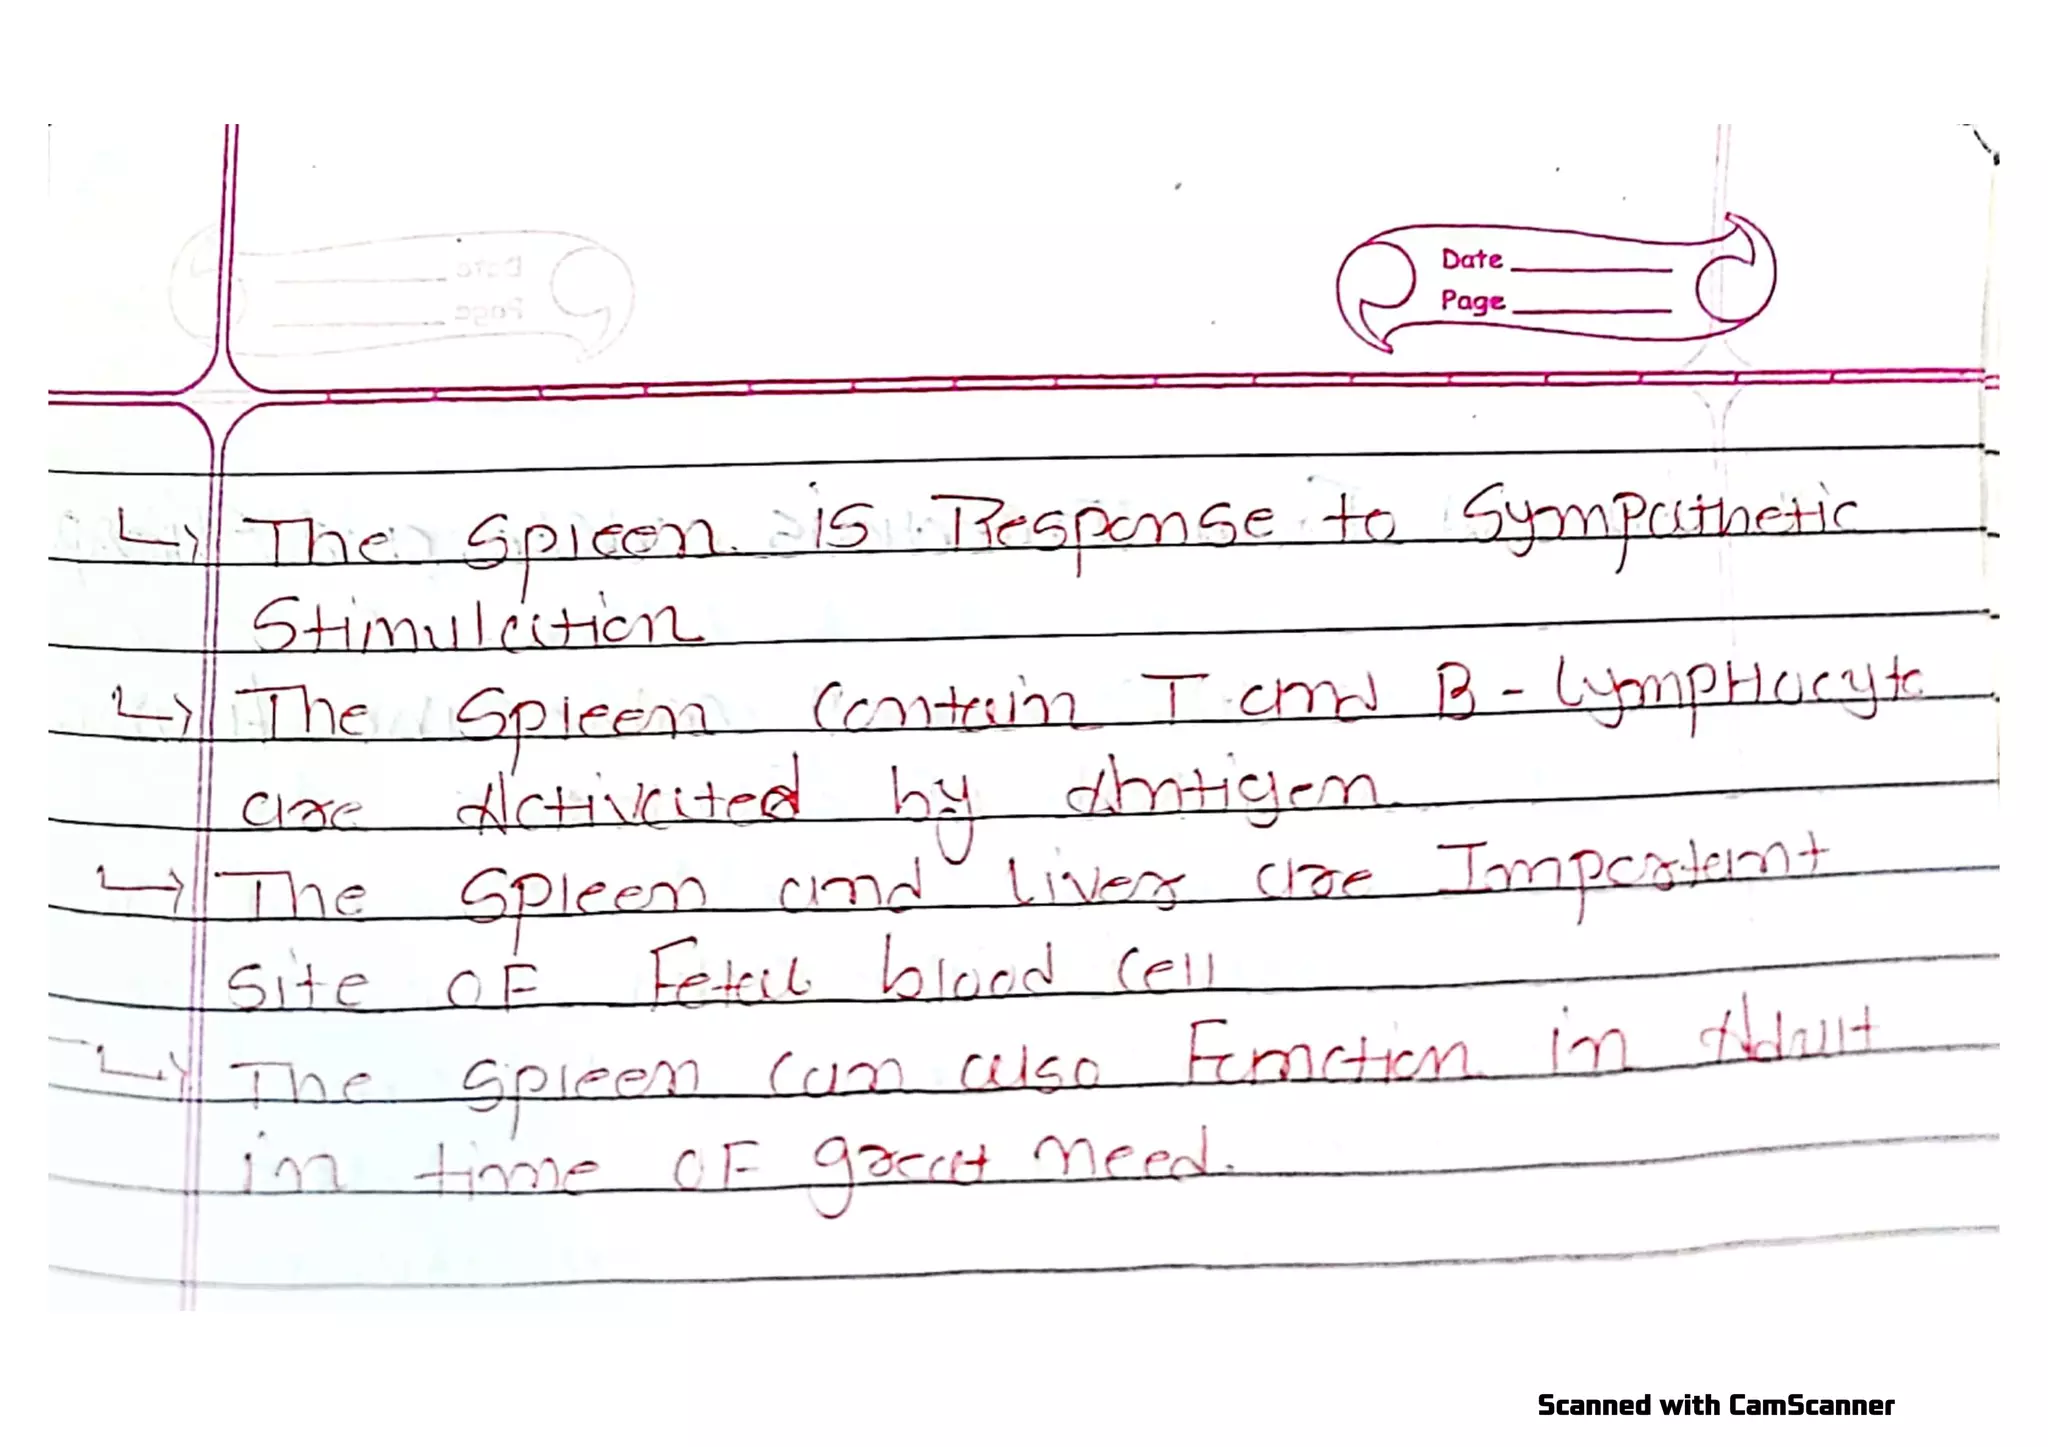 Date
Page
↳ The Spleen is Response to Sympathetic
Stimulation
↳ The Spleen Contain T and B - LympHocyte
are Activated by Antigen
↳ The Spleen and Liver are Important
Site OF Fetal blood Cell
↳ The Spleen Can also Function in Adult
in time OF great need.
Scanned with CamScanner